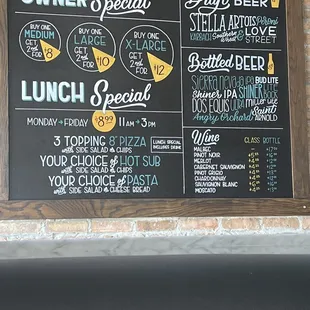 OWNER Special
BUY ONE
MEDIUM
GET
2ND
FOR $8
BUY ONE
LARGE
GET
2ND
FOR $10
BUY ONE
X-LARGE
GET
2ND
FOR $12
LUNCH Special
MONDAY → FRIDAY $8.99 11AM → 3PM
3 TOPPING 8" PIZZA
with SIDE SALAD & CHIPS
LUNCH SPECIAL
INCLUDES DRINK
YOUR CHOICE of HOT SUB
with SIDE SALAD & CHIPS
YOUR CHOICE of PASTA
with SIDE SALAD & CHEESE BREAD
BEER
STELLA ARTOIS Peroni
KARBACH Southern Wheat & LOVE STREET
Bottled BEER
Sierra nevada ipa BUD LITE
Shiner IPA SHINER BOCK
DOS EQUIS Ultra miller lite
Angry Orchard Saint ARNOLD
Wine CLASS BOTTLE
MALBEC
PINOT NOIR
MERLOT
CABERNET SAUVIGNON
PINOT GRIGIO
CHARDONNAY
SAUVIGNON BLANC
MOSCATO